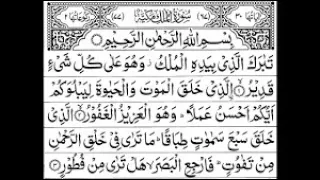 سُوْرَةُ الْمُلْكِ مَكِّيَّةٌ
بِسْمِ اللّٰهِ الرَّحْمٰنِ الرَّحِيْمِ
تَبٰرَكَ الَّذِيْ بِيَدِهِ الْمُلْكُ وَهُوَ عَلٰى كُلِّ شَيْءٍ
قَدِيْرُ ۝ الَّذِيْ خَلَقَ الْمَوْتَ وَالْحَيٰوةَ لِيَبْلُوَكُمْ
اَيُّكُمْ اَحْسَنُ عَمَلًا وَهُوَ الْعَزِيْزُ الْغَفُوْرُ ۝ الَّذِيْ
خَلَقَ سَبْعَ سَمٰوٰتٍ طِبَاقًا مَا تَرٰى فِيْ خَلْقِ الرَّحْمٰنِ
مِنْ تَفٰوُتٍ فَارْجِعِ الْبَصَرَ هَلْ تَرٰى مِنْ فُطُوْرٍ ۝